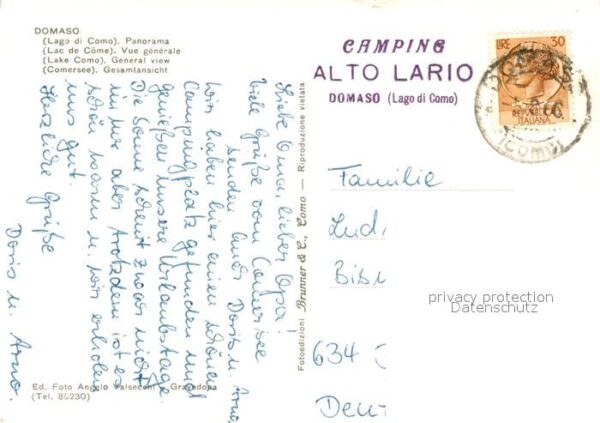 DOMASO
(Lago di Como). Panorama
(Lac de Côme). Vue générale
(Lake Como). General view
(Comersee). Gesamtansicht
CAMPING
ALTO LARIO
DOMASO (Lago di Como)
LIRE 30
REPUBBLICA
ITALIANA
(COMO)
Liebe Oma, lieber Opa!
Viele Grüße vom Comer See
senden Euch Doris u. Arno.
Wir haben hier einen schönen
Campingplatz gefunden und
genießen unsere Urlaubstage.
Die Sonne scheint zwar nicht
immer aber trotzdem ist es
schön warm u. wir erholen
uns gut.
Herzliche Grüße
Doris u. Arno.
Fotoedizioni Brunner & C., Como — Riproduzione vietata
Familie
Lud
Bis
634
Deut
privacy protection
Datenschutz
Ed. Foto Angelo Valsecchi - Gravedona
(Tel. 85230)